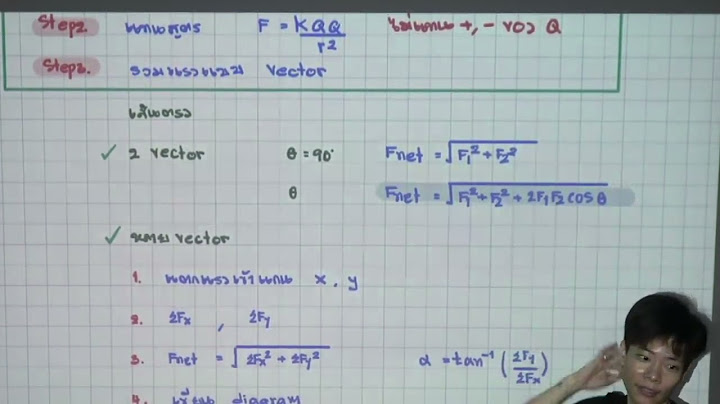 Step2. แทนสูตร F = KQQ/r2 ไม่แทน +, - ของ Q
Step3. รวมแรงแบบ vector
เส้นตรง
✓ 2 vector θ = 90° Fnet = √F₁² + F₂²
θ Fnet = √F₁² + F₂² + 2F₁F₂ cos θ
✓ หลาย vector
1. แตกแรงเข้าแกน x , y
2. ΣFx , ΣFy
3. Fnet = √ΣFx² + ΣFy² α = tan⁻¹ (ΣFy/ΣFx)
4. เขียน diagram